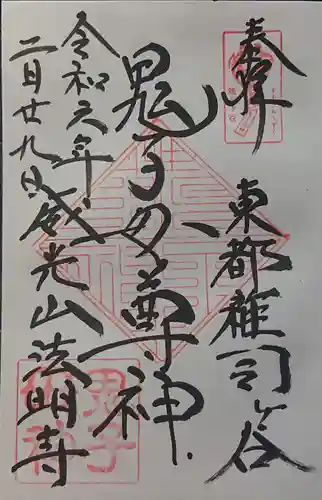 奉拝
東都雑司ヶ谷
鬼子母尊神
令和六年
二月廿九日 威光山法明寺